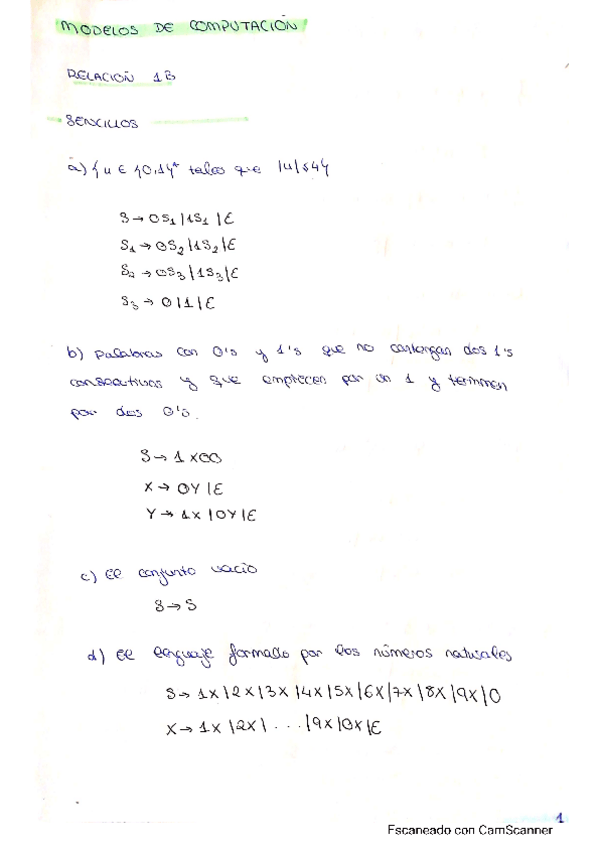 MODELOS DE COMPUTACIÓN
RELACIÓN 1B
SENCILLOS
a) {u ∈ {0,1}* tales que |u|≤4}
S → 0S₁ | 1S₁ | ε
S₁ → 0S₂ | 1S₂ | ε
S₂ → 0S₃ | 1S₃ | ε
S₃ → 0 | 1 | ε
b) Palabras con 0's y 1's que no contengan dos 1's
consecutivos y que empiecen por un 1 y terminen
por dos 0's.
S → 1X00
X → 0Y | ε
Y → 1X | 0Y | ε
c) El conjunto vacío
S → S
d) El lenguaje formado por los números naturales
S → 1X | 2X | 3X | 4X | 5X | 6X | 7X | 8X | 9X | 0
X → 1X | 2X | ... | 9X | 0X | ε
1
Escaneado con CamScanner